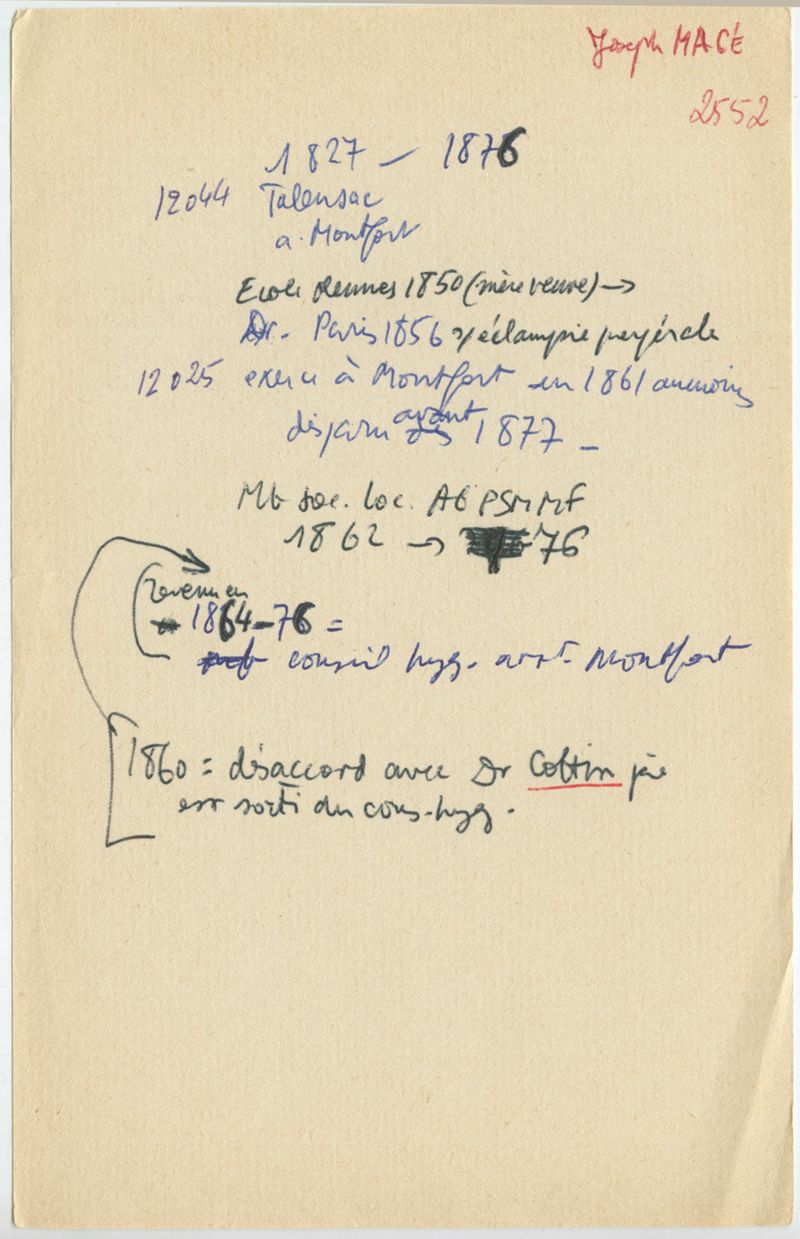 Joseph MACÉ
2552
1827 - 1876
12044 Talensac
a. Montfort
Ecole Rennes 1850 (mère veuve) →
Dr. Paris 1856 s/éclampsie puerpérale
12025 exerce à Montfort en 1861 au moins
disparu avant 1877 -
Mb soc. loc. AGPSMMF
1862 → 76
(revenu en
1864-76 =
conseil hyg. arrt. Montfort
1860 = désaccord avec Dr Cottin
est sorti du cons. hyg.